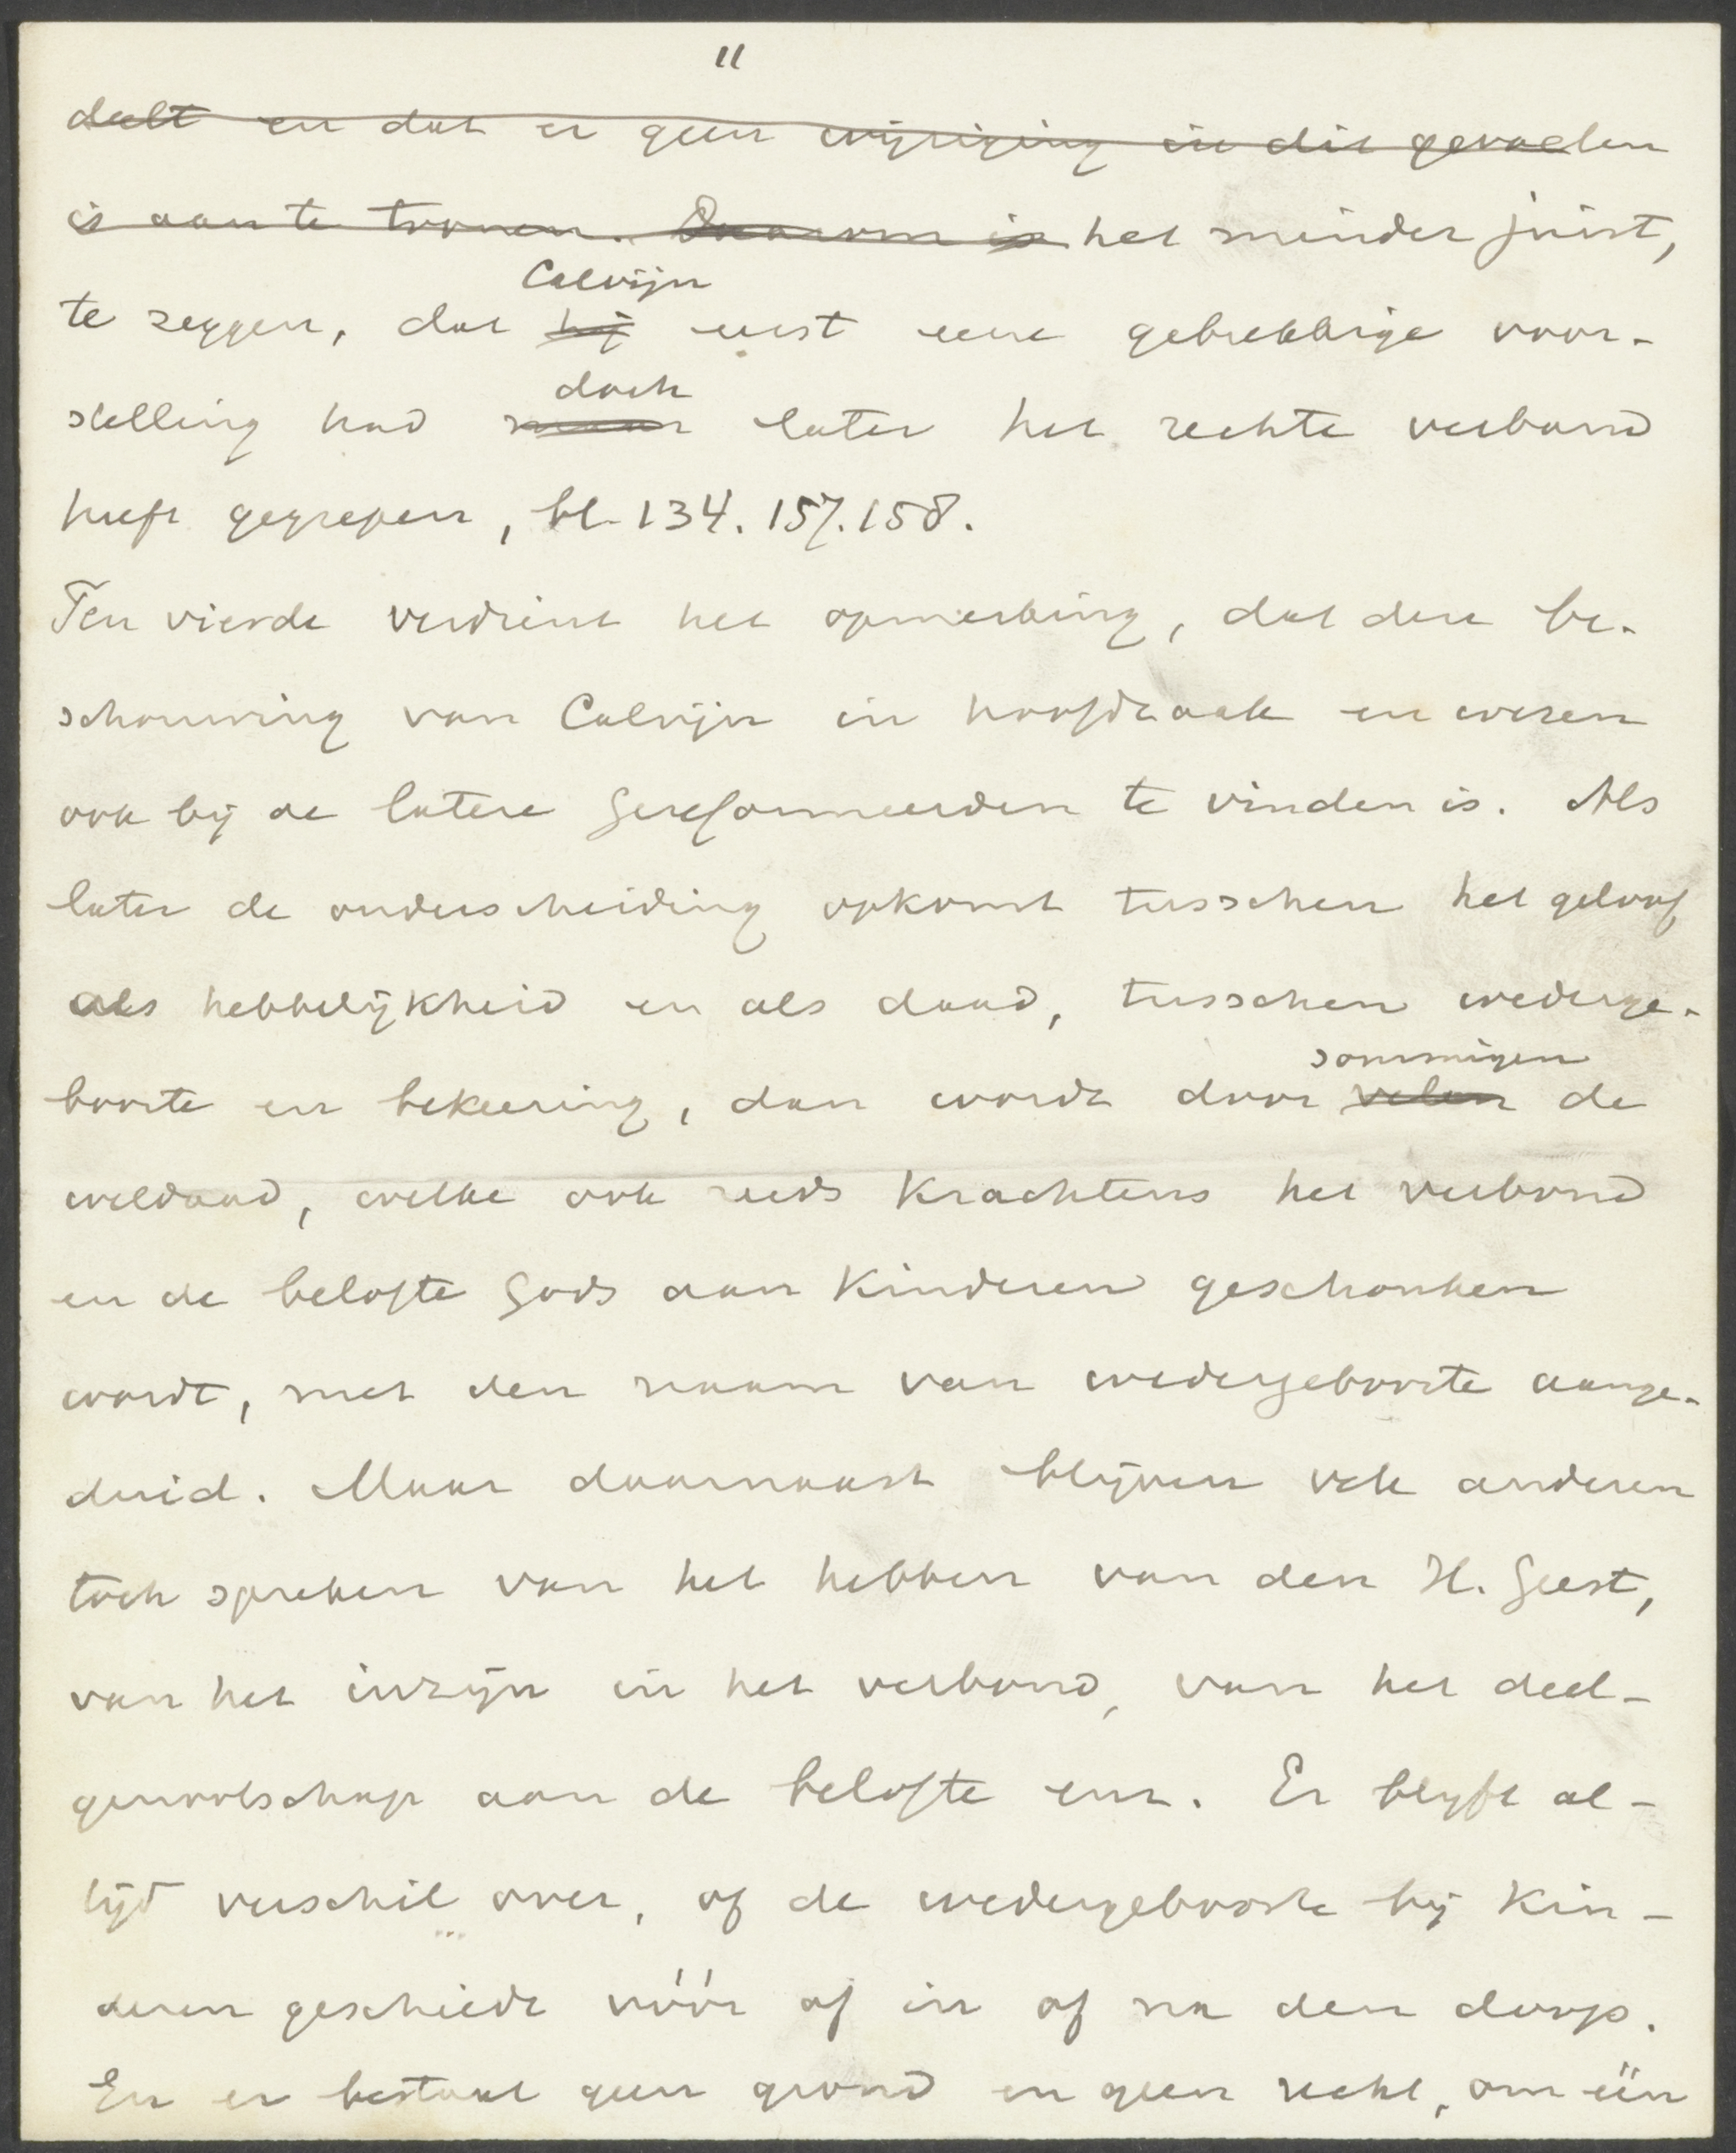 11
deelt en dat er geen wijziging in dit gevoelen
is aan te toonen. Daarom is het minder juist,
Calvijn
te zeggen, dat hij eerst eene gebrekkige voor-
doch
stelling had maar later het rechte verband
heeft gegrepen, bl. 134. 157. 158.
Ten vierde verdient het opmerking, dat deze be-
schouwing van Calvijn in hoofdzaak en wezen
ook bij de latere Gereformeerden te vinden is. Als
later de onderscheiding opkomt tusschen het geloof
als hebbelijkheid en als daad, tusschen wederge-
sommigen
boorte en bekeering, dan wordt door velen de
weldaad, welke ook reeds krachtens het verbond
en de belofte Gods aan kinderen geschonken
wordt, met den naam van wedergeboorte aange-
duid. Maar daarnaast blijven vele anderen
toch spreken van het hebben van den H. Geest,
van het inzijn in het verbond, van het deel-
genootschap aan de belofte enz. Er blijft al-
tijd verschil over, of de wedergeboorte bij kin-
deren geschiede vóór of in of na den doop.
En er bestaat geen grond en geen recht, om één